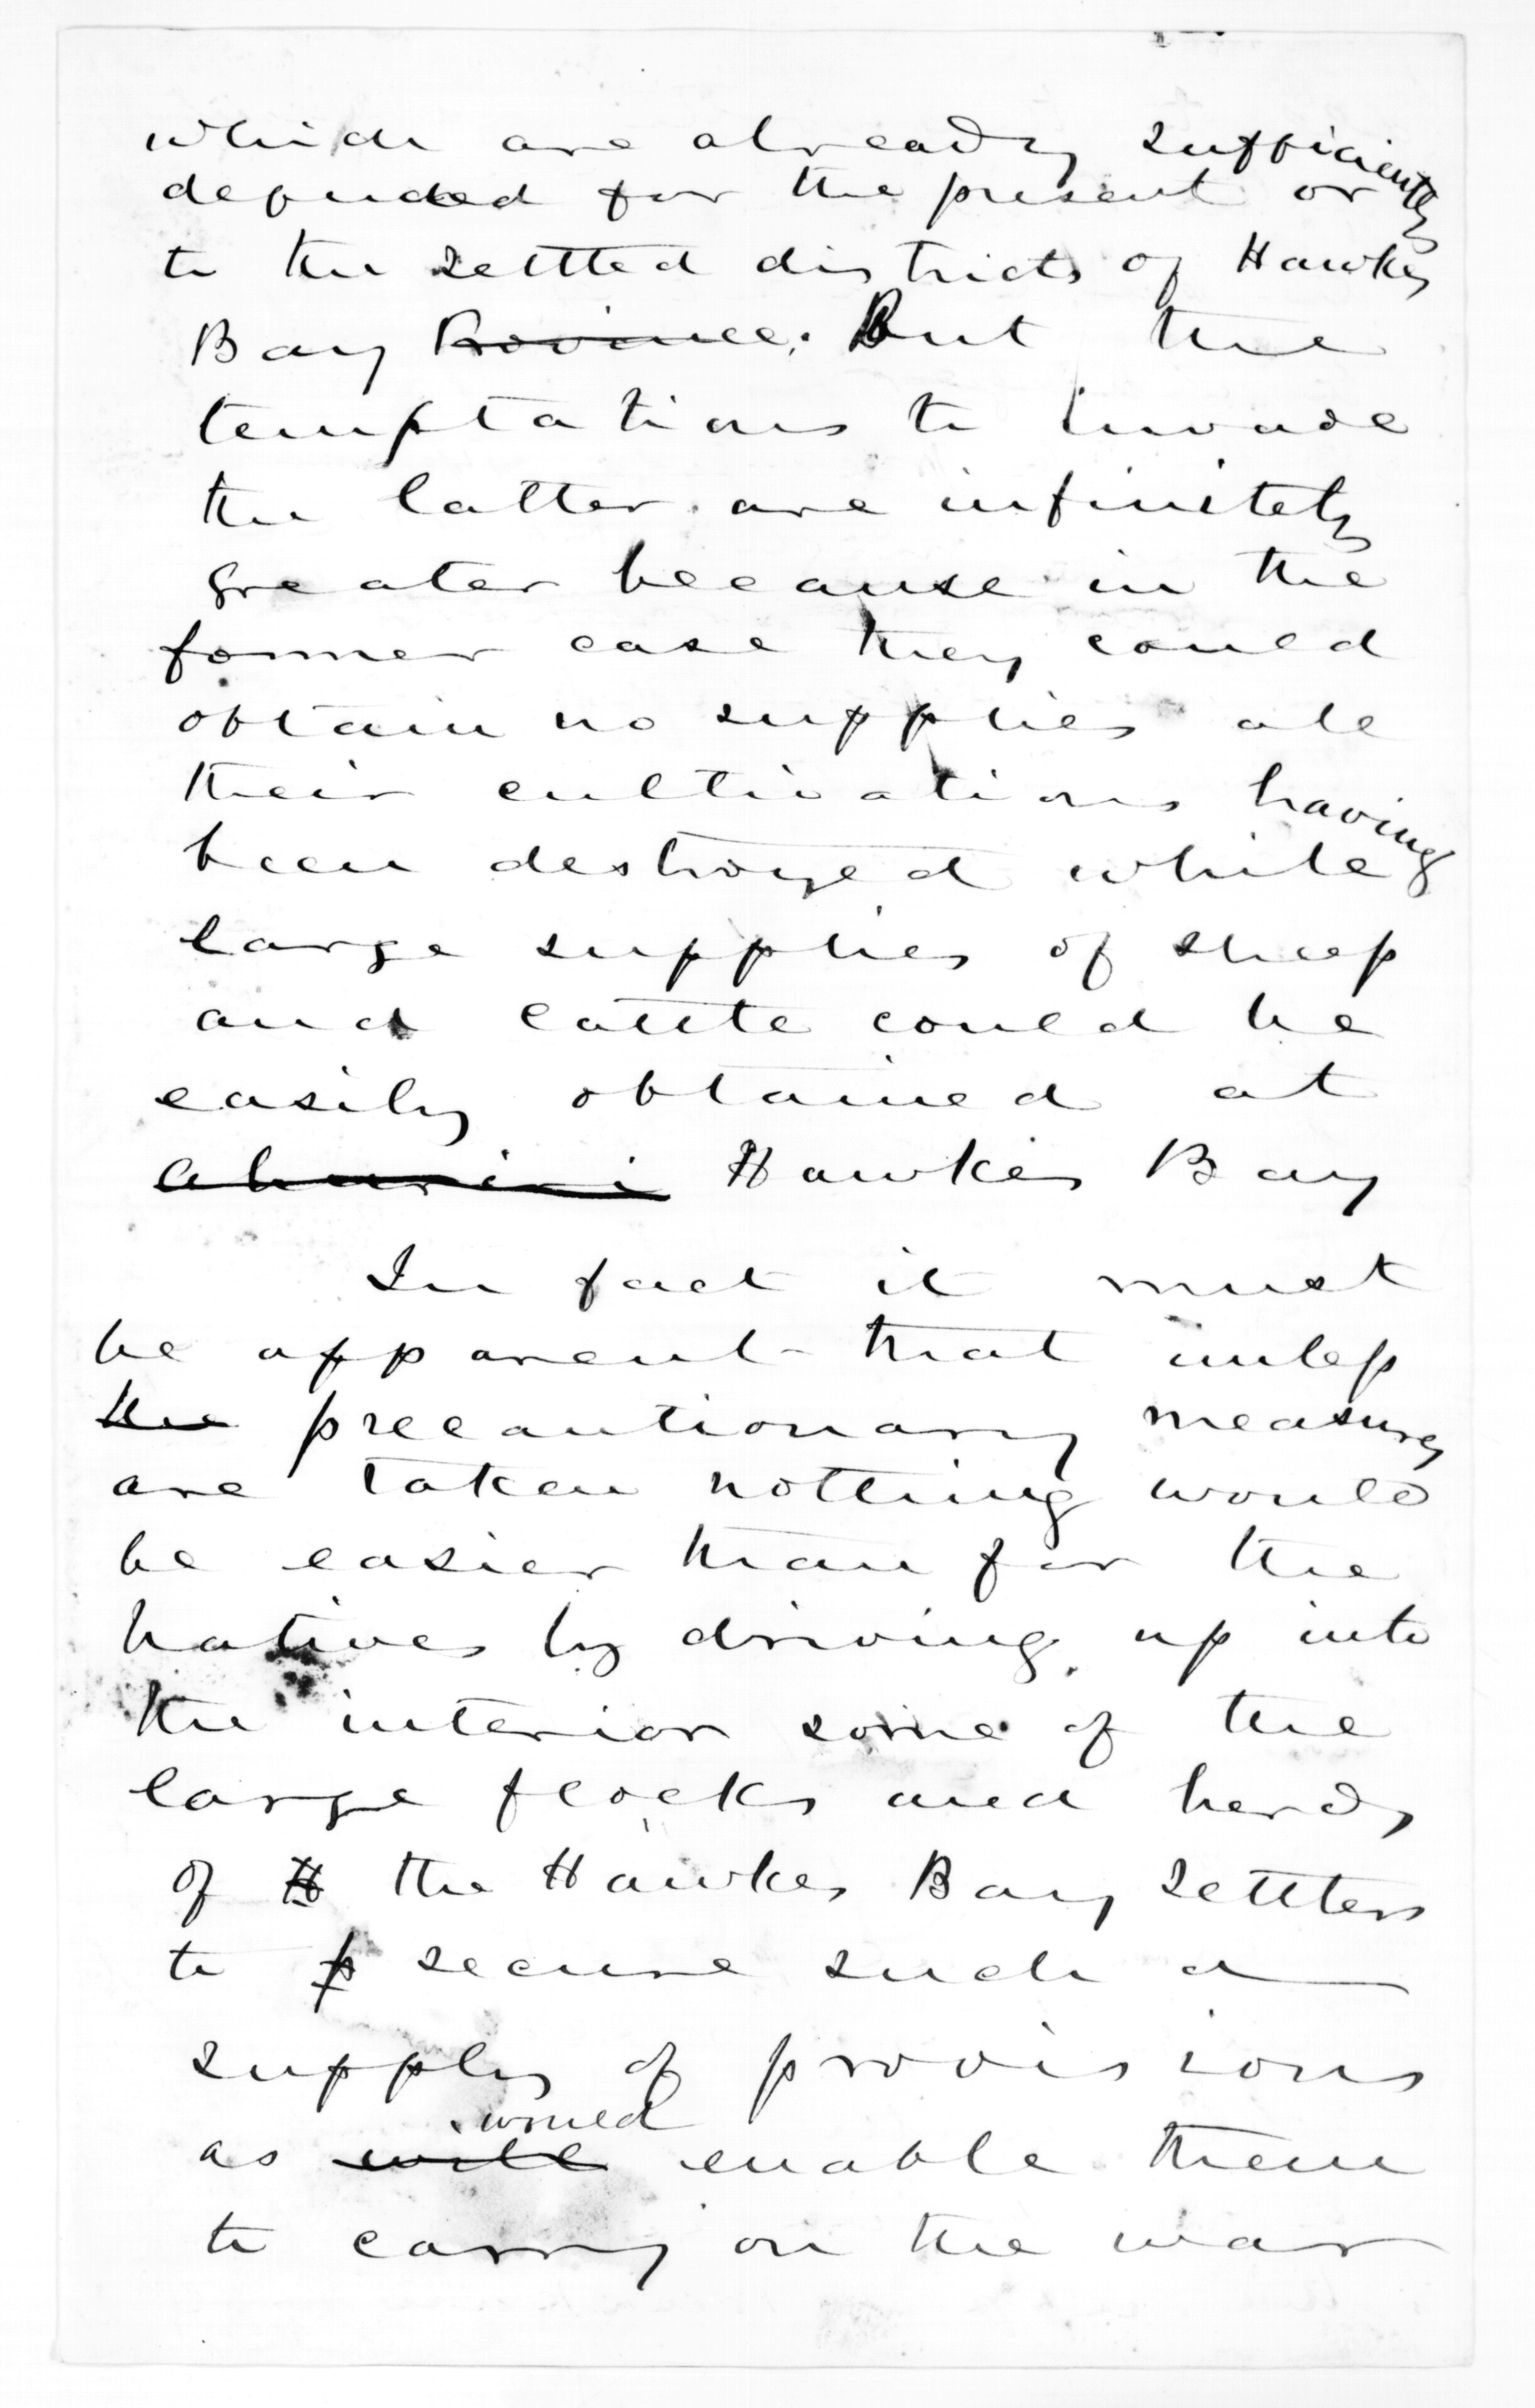 which are already sufficiently
defended for the present or
to the settled districts of Hawkes
Bay Province. But the
temptations to invade
the latter are infinitely
greater because in the
former case they could
obtain no supplies all
their cultivations having
been destroyed while
large supplies of sheep
and cattle could be
easily obtained at
Ahuriri Hawkes Bay
In fact it must
be apparent that unless
the precautionary measures
are taken nothing would
be easier than for the
natives by driving up into
the interior some of the
large flocks and herds
of H the Hawkes Bay settlers
to p secure such a
supply of provisions
would
as will enable them
to carry on the war